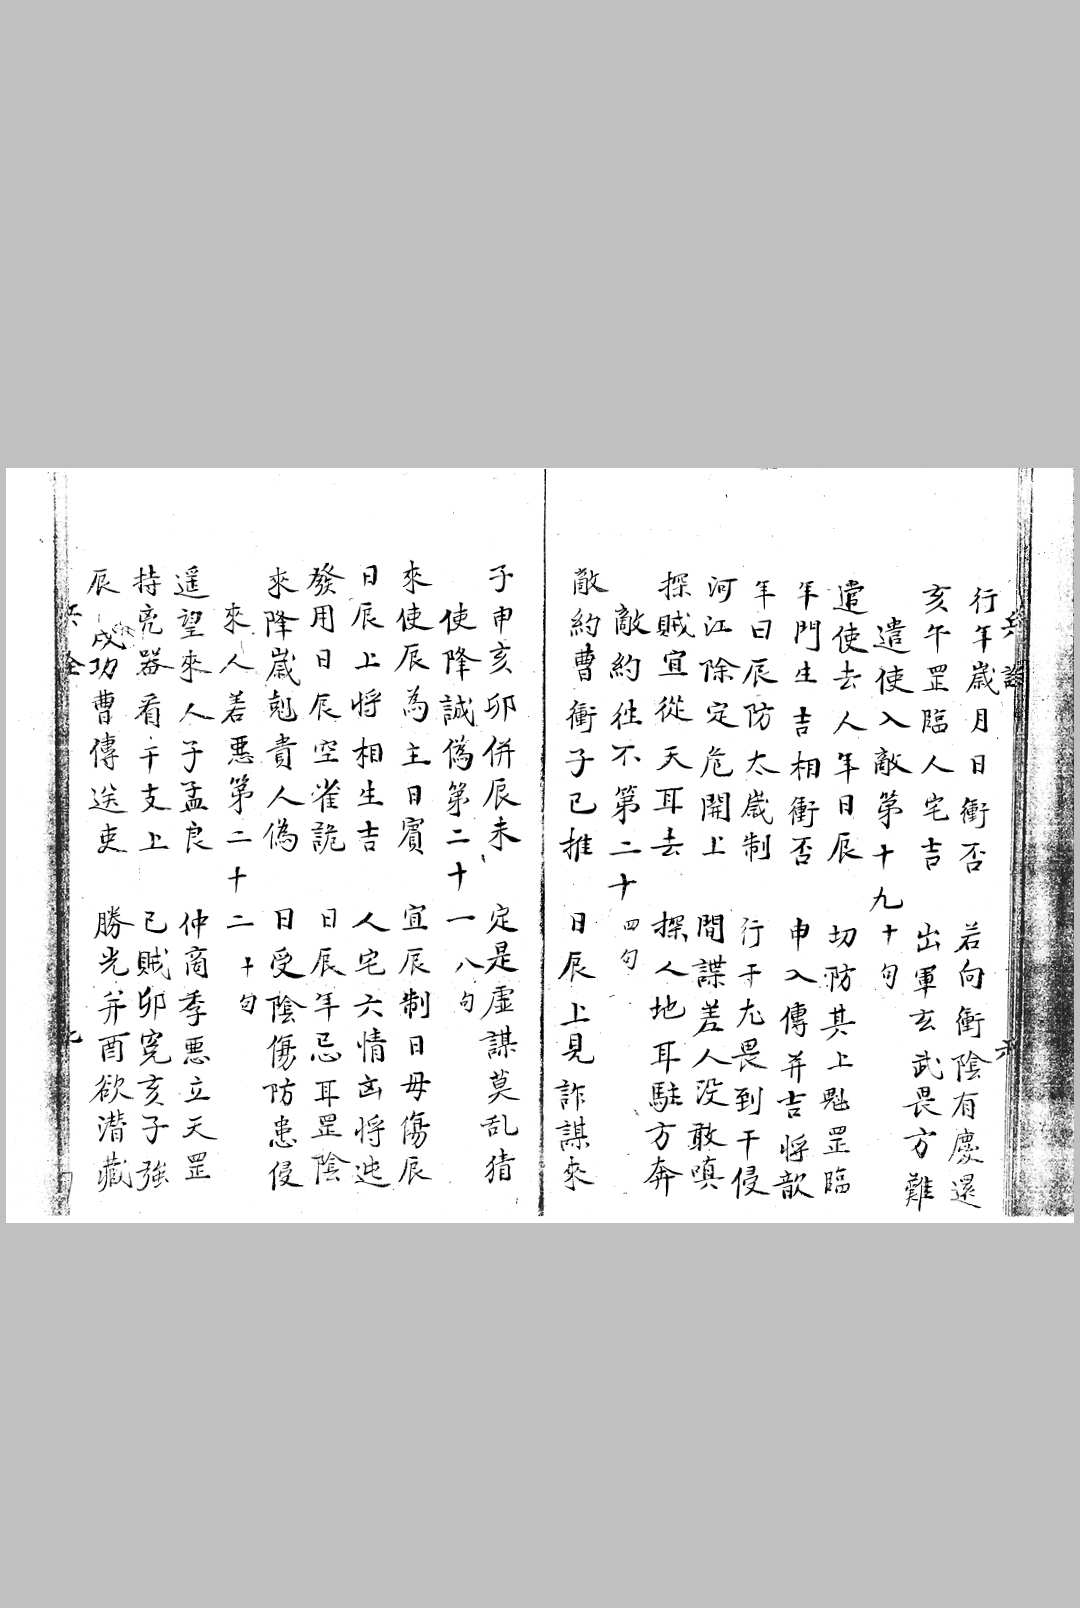 行年歲月日衝否　若向衝陰有慶還
亥午罡臨人宅吉　出軍玄武畏方難
遣使入敵第十九　十句
遣使去人年日辰　切防其上魁罡臨
年門生吉相衝否　申入傳并吉將歆
年日辰防太歲制　行于尤畏到干侵
河江除定危開上　間諜差人没敢嗔
探賊宜從天耳去　探人地耳駐方奔
敵約徃不第二十　四句
敵約曹衝子已推　日辰上見詐謀來
子申亥卯併辰未　定是虛謀莫乱猜
使降誠偽第二十一　八句
來使辰為主日賓　宜辰制日毋傷辰
日辰上將相生吉　人宅六情凶將迍
發用日辰空雀詭　日辰年忌耳罡陰
來降歲剋貴人偽　日受陰傷防患侵
來人若悪第二十二　十句
遥望來人子孟良　仲商季悪立天罡
持亮器看干支上　已賊卯寃亥子強
辰戌功曹傳送吏　勝光并酉欲潜藏